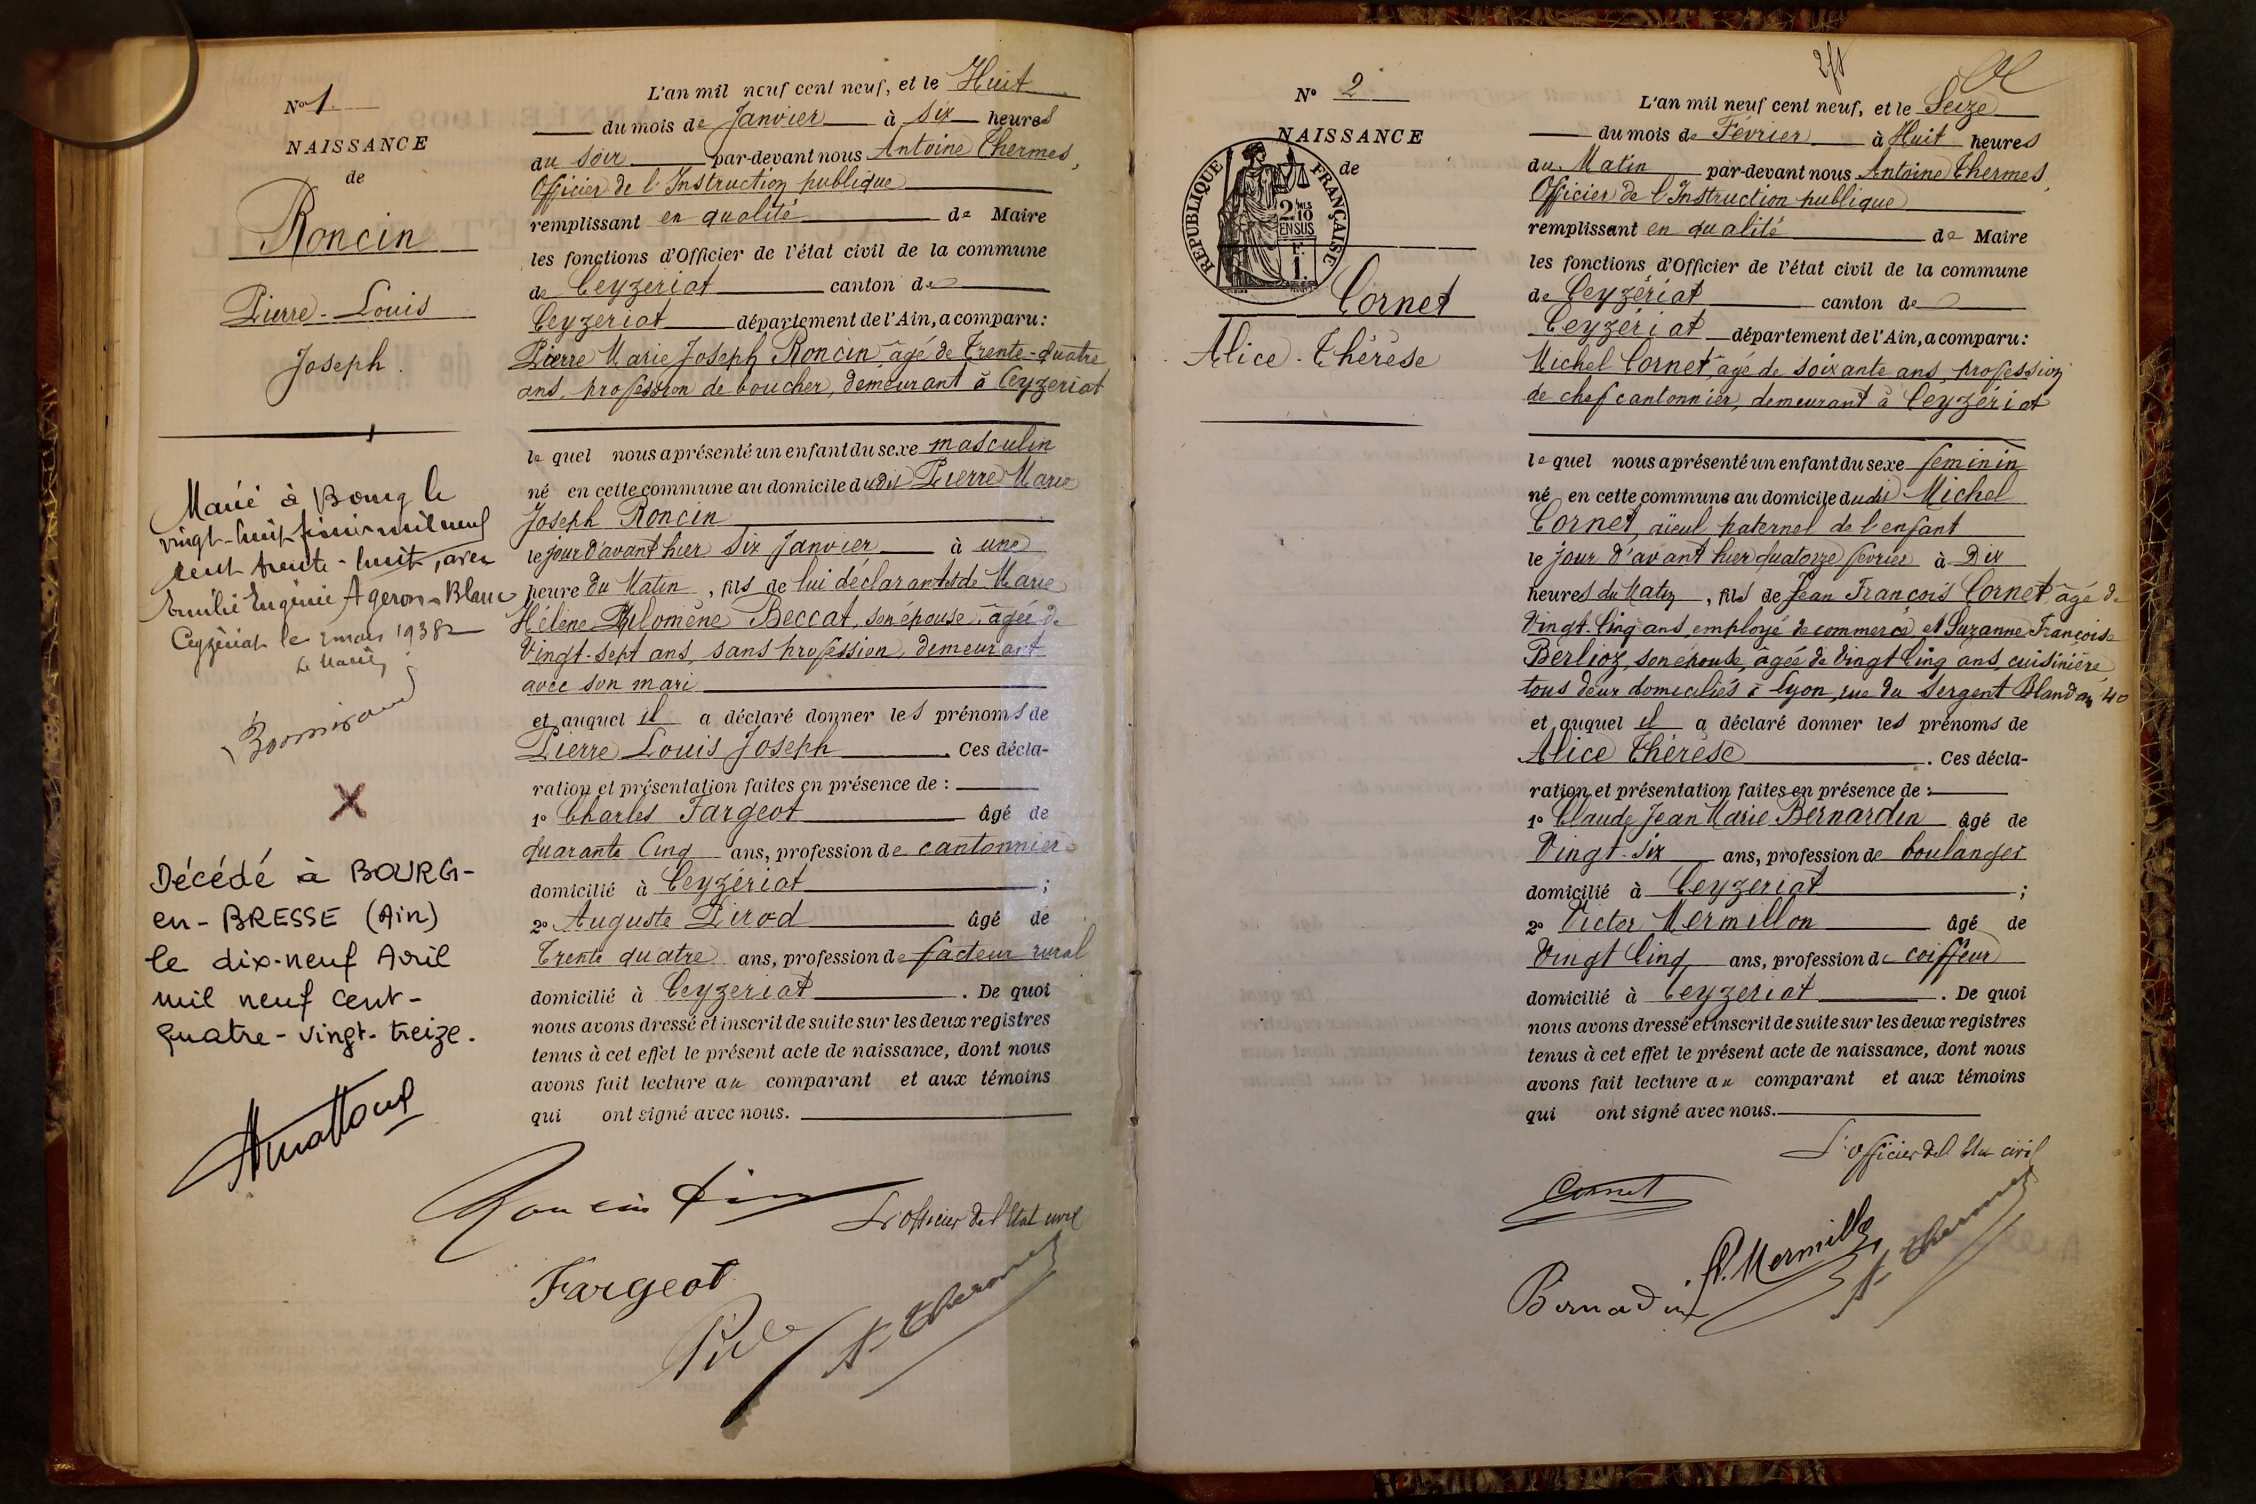 N° 1
NAISSANCE
de
Roncin
Pierre-Louis
Joseph.
Marié à Bourg le
vingt-huit janvier mil neuf
cent trente-huit, avec
Emilie Eugénie Ageron-Blanc
Ceyzériat le 2 mars 1938
Le Maire,
X
Décédé à BOURG-
en-BRESSE (Ain)
le dix-neuf Avril
mil neuf cent-
quatre-vingt-treize.
L'an mil neuf cent neuf, et le Huit
du mois de Janvier à six heures
du soir par-devant nous Antoine Thermes,
Officier de l'Instruction publique
remplissant en qualité de Maire
les fonctions d'Officier de l'état civil de la commune
de Ceyzeriat canton de
Ceyzeriat département de l'Ain, a comparu:
Pierre Marie Joseph Roncin âgé de Trente-quatre
ans, profession de boucher, demeurant à Ceyzeriat
le quel nous a présenté un enfant du sexe masculin
né en cette commune au domicile dudit Pierre Marie
Joseph Roncin
le jour d'avant hier six Janvier à une
heure du Matin, fils de lui déclarant et de Marie
Hélène Philomène Beccat, son épouse, âgée de
Vingt-sept ans, sans profession, demeurant
avec son mari
et auquel il a déclaré donner les prénoms de
Pierre Louis Joseph. Ces décla-
ration et présentation faites en présence de:
1° Charles Fargeot âgé de
quarante Cinq ans, profession de cantonnier
domicilié à Ceyzériat;
2° Auguste Pirod âgé de
Trente quatre ans, profession de facteur rural
domicilié à Ceyzeriat. De quoi
nous avons dressé et inscrit de suite sur les deux registres
tenus à cet effet le présent acte de naissance, dont nous
avons fait lecture au comparant et aux témoins
qui ont signé avec nous.
Roncin
L'officier de l'Etat civil
Fargeot
A. Thermes
N° 2
NAISSANCE
de
RÉPUBLIQUE FRANÇAISE
2/10
EN SUS
F.
1.
Cornet
Alice-Thérèse
L'an mil neuf cent neuf, et le Seize
du mois de Février à Huit heures
du Matin par-devant nous Antoine Thermes,
Officier de l'Instruction publique
remplissant en qualité de Maire
les fonctions d'Officier de l'état civil de la commune
de Ceyzériat canton de
Ceyzériat département de l'Ain, a comparu:
Michel Cornet, âgé de soixante ans, profession
de chef cantonnier, demeurant à Ceyzériat
le quel nous a présenté un enfant du sexe feminin
né en cette commune au domicile dudit Michel
Cornet, aïeul paternel de l'enfant
le jour d'avant hier quatorze février à Dix
heures du Matin, fils de Jean François Cornet, âgé de
Vingt-Cinq ans, employé de commerce et Suzanne Françoise
Berlioz, son épouse, âgée de Vingt Cinq ans, cuisinière
tous deux domiciliés à Lyon, rue du Sergent Blandan, 40
et auquel il a déclaré donner les prénoms de
Alice Thérèse. Ces décla-
ration et présentation faites en présence de:
1° Claude Jean Marie Bernardin âgé de
Vingt-six ans, profession de boulanger
domicilié à Ceyzeriat;
2° Victor Mermillon âgé de
Vingt Cinq ans, profession de coiffeur
domicilié à Ceyzeriat. De quoi
nous avons dressé et inscrit de suite sur les deux registres
tenus à cet effet le présent acte de naissance, dont nous
avons fait lecture au comparant et aux témoins
qui ont signé avec nous.
L'officier de l'Etat civil
Cornet
Bernadin
A. Thermes